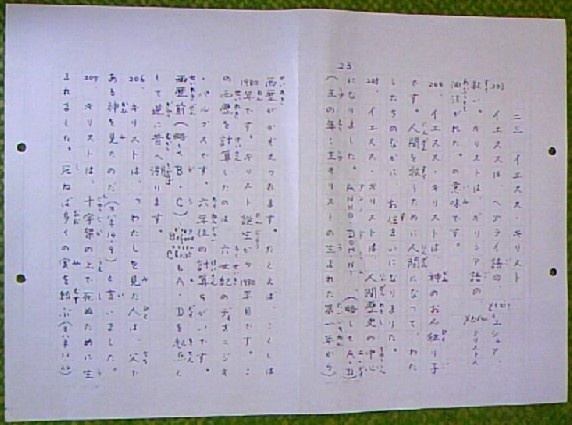 二三 イエスス キリスト
203 イエスは、ヘブライ語の
救い。キリストは、ギリシア語の
油注がれた。の意味です。
204 イエスス・キリストは 神のおん独り子
です。人間を救うために人間になって、わた
したちのなかに お住まいになりました。
205 イエスス・キリストは 人間歴史の中心
になりました。ANNO DOMINI (略してA・D
(主の年=主キリストの生まれた第一年から)
23
西暦がかぞえられます。たとえば、ことしは
1980年です。キリスト誕生から1980年目です。こ
の西暦を計算したのは 六世紀のディオニジオ
六年位の計算ちがいです。
西暦前(略・B・C) Before Christ もA・Dを
して逆に昔へ
206 キリストは、「わたしを見た人は、父で
ある神を見たのだ」 と言いました。
207 キリストは、十字架の上で死ぬために生
まれました。死ねば多くの実を結ぶ